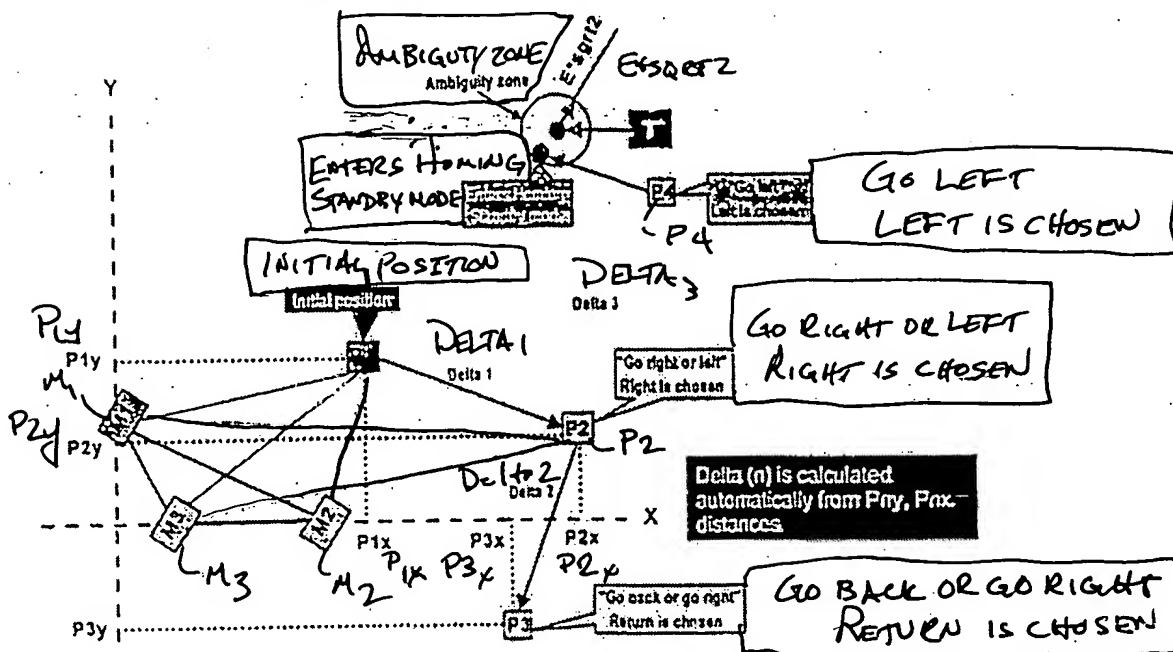 AMBIGUTY ZONE
Ambiguity zone
E*sqrt2
E*SQRT2
T
Y
ENTERS HOMING
STANDBY MODE
P4
P4
"Go left"
Left is chosen
GO LEFT
LEFT IS CHOSEN
INITIAL POSITION
Initial position
DELTA 3
Delta 3
P1y
P1y
P1
DELTA 1
Delta 1
"Go right or left"
Right is chosen
GO RIGHT OR LEFT
RIGHT IS CHOSEN
M1
M1
P2y
P2y
P2
P2
D=1 to 2
Delta 2
Delta (n) is calculated
automatically from Pny, Pnx-
distances
M3
M2
X
P1x
P1x
P3x
P3x
P2x
P2x
M3
M2
P3y
P3
"Go back or go right"
Return is chosen
GO BACK OR GO RIGHT
RETURN IS CHOSEN